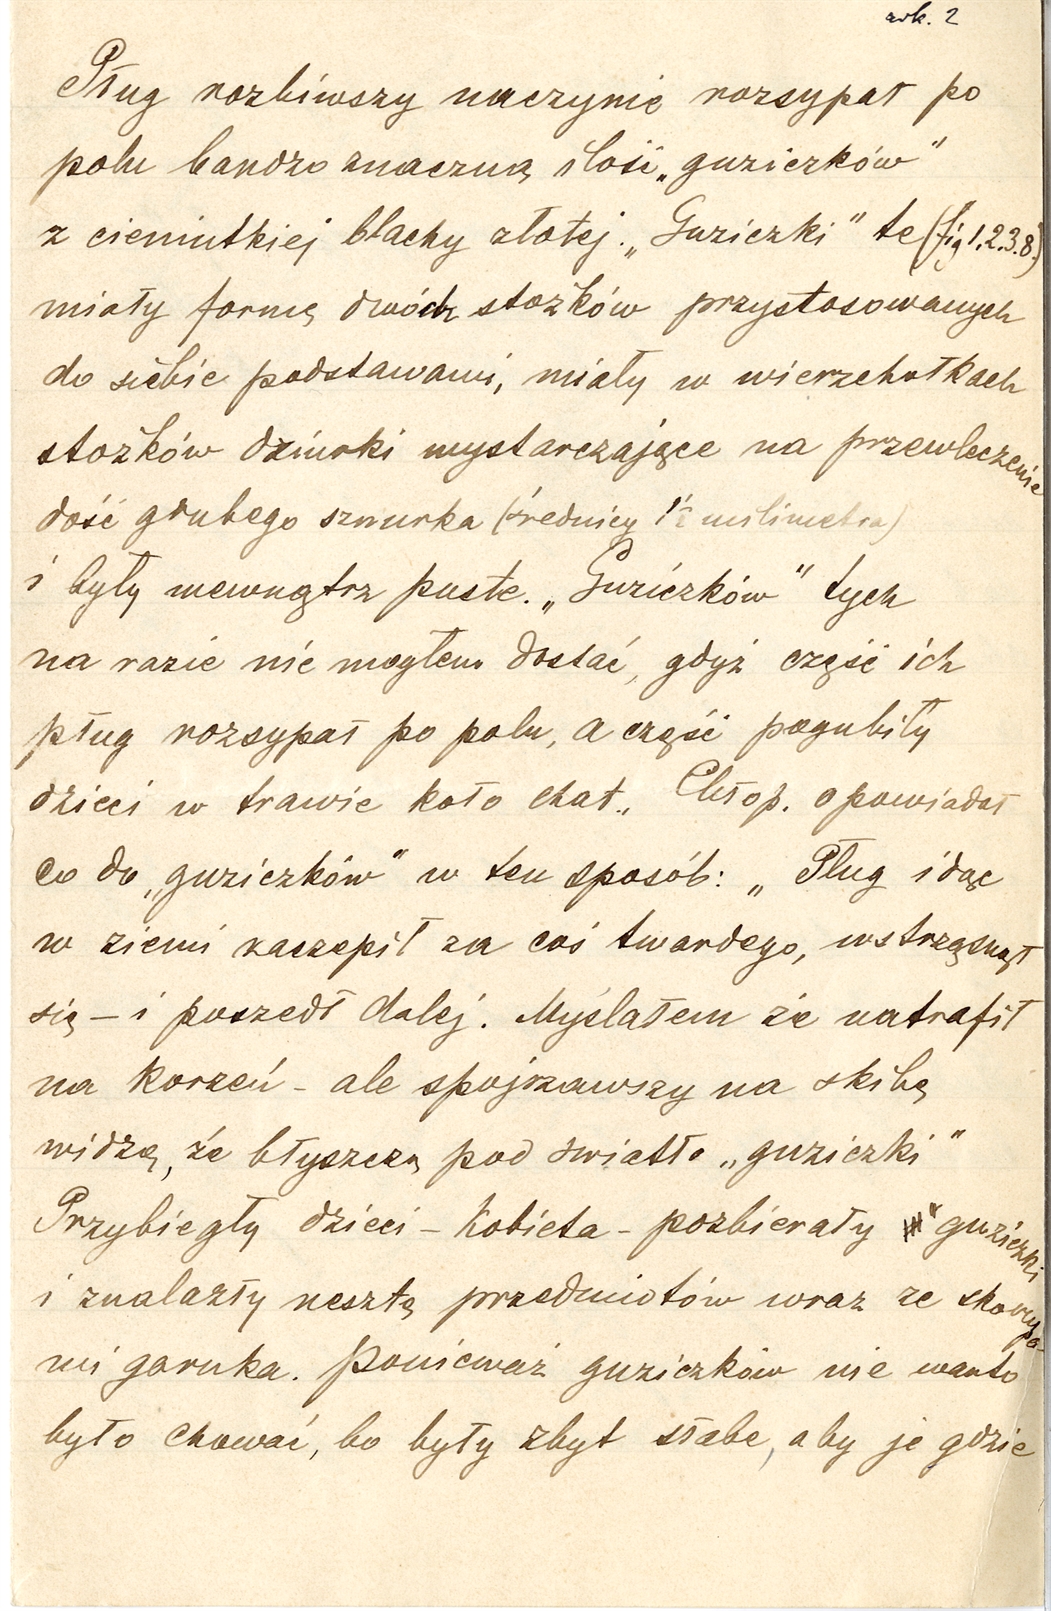 ark. 2
Pług rozbiwszy naczynie rozsypał po
polu bardzo znaczną ilość „guziczków"
z cieniutkiej blachy złotej. „Guziczki" te (fig 1.2.3.8.)
miały formę dwóch stożków przystosowanych
do siebie podstawami, miały w wierzchołkach
stożków dziurki wystarczające na przewleczenie
dość grubego sznurka (średnicy 1½ milimetra)
i były wewnątrz puste. „Guziczków" tych
na razie nie mogłem dostać, gdyż część ich
pług rozsypał po polu, a część pogubiły
dzieci w trawie koło chat. Chłop. opowiadał
co do „guziczków" w ten sposób: „Pług idąc
w ziemi zaczepił za coś twardego, wstrząsnął
się – i poszedł dalej. Myślałem że natrafił
na korzeń – ale spojrzawszy na skibę
widzę, że błyszczą pod światło „guziczki"
Przybiegły dzieci – kobieta – pozbierały "guziczki
i znalazły resztę przedmiotów wraz ze skorupa-
mi garnka. Ponieważ guziczków nie warto
było chować, bo były zbyt słabe, aby je gdzie